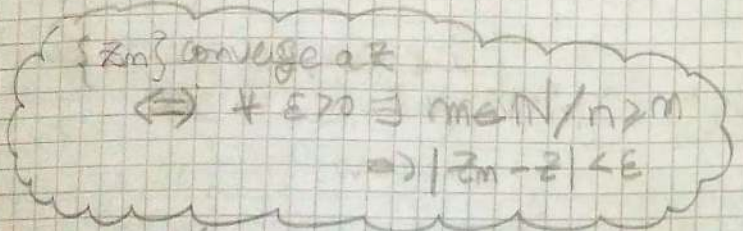 {zn} converge a z
⟺ ∀ ε>0 ∃ m∈ℕ/n≥m
⟹ |zn - z| < ε